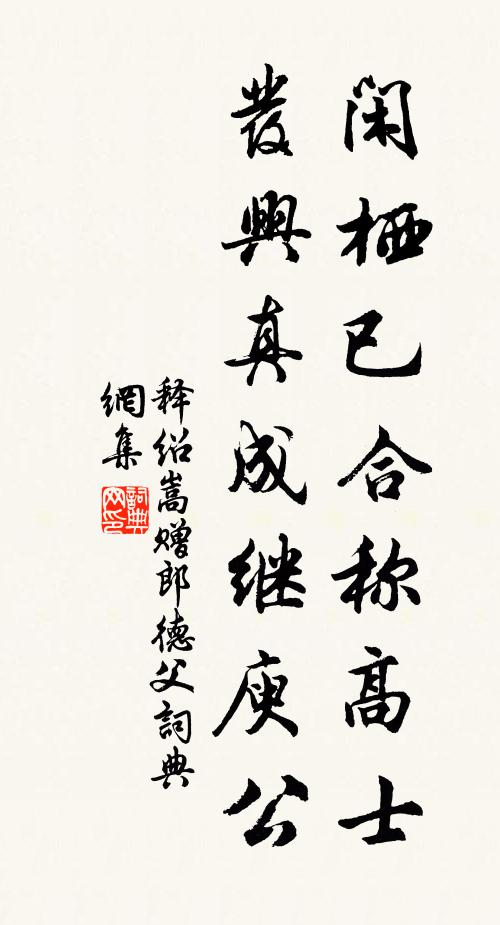 闲栖已合称高士
發興真成继庾公
释绍嵩赠郎德父詞典
網集
詞典
网印